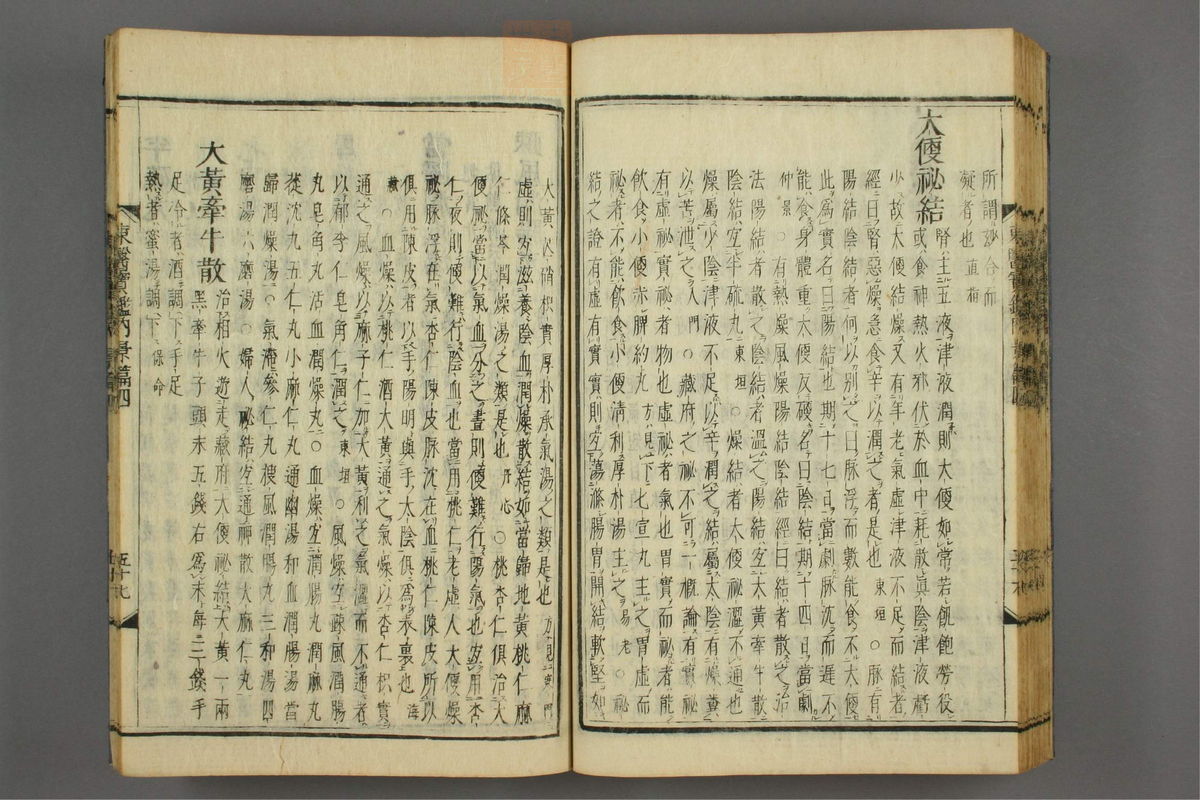 所謂妙合而
凝者也直指
大便祕結
腎主五液津液潤則大便如常若飢飽勞役
或食辛熱火邪伏於血中耗散眞陰津液虧
少故大便結燥又有年老氣虛津液不足而結者
經曰腎惡燥急食辛以潤之者是也東垣○脉有
陽結陰結者何以別之曰脉浮而數能食不大便
此爲實名曰陽結也期十七日當劇脉沈而遲不
能食身體重大便反硬名曰陰結期十四日當劇
仲景○有熱燥風燥陽結陰結經曰結者散之治
法陽結者散之陰結者溫之陽結宜大黃牽牛散
陰結宜半硫丸東垣○燥結者大便祕澀不通也
燥屬少陰津液不足以辛潤之結屬太陰有燥糞
以苦泄之入門○藏府之祕不可一槪論有實祕
有虛祕實祕者物也虛祕者氣也胃實而祕者能
飮食小便赤脾約丸方見下七宣丸主之胃虛而
祕者不能飮食小便淸利厚朴湯主之易老○祕
結之證有虛有實實則宜蕩滌腸胃開結軟堅如
大黃芒硝枳實厚朴承氣湯之類是也方見寒門
虛則宜滋養陰血潤燥散結如當歸地黃桃仁麻
仁條芩潤燥湯之類是也丹心○桃杏仁俱治大
便祕當以氣血分之晝則便難行陽氣也宜用杏
仁夜則便難行陰血也當用桃仁老虛人大便燥
祕脉浮在氣杏仁陳皮脉沈在血桃仁陳皮所以
俱用陳皮者以手陽明與手太陰俱爲表裏也海
藏○血燥以桃仁酒大黃通之氣燥以杏仁枳實
通之風燥以麻子仁加大黃利之氣澀而不通者
以郁李仁皂角仁潤之東垣○風燥宜疎風潤腸
丸皂角丸活血潤燥丸○血燥宜潤腸丸潤麻丸
從沈丸五仁丸小麻仁丸通幽湯和血潤腸湯當
歸潤燥湯○氣滯參仁丸搜風潤腸丸三和湯四
磨湯六磨湯○婦人祕結宜通神散大麻仁丸
大黃牽牛散
治相火遊走藏府大便祕結大黃一兩
黑牽牛子頭末五錢右爲末每三錢手
足冷者酒調下手足
熱者蜜湯調下保命
東醫寶鑑內景篇四
五十七